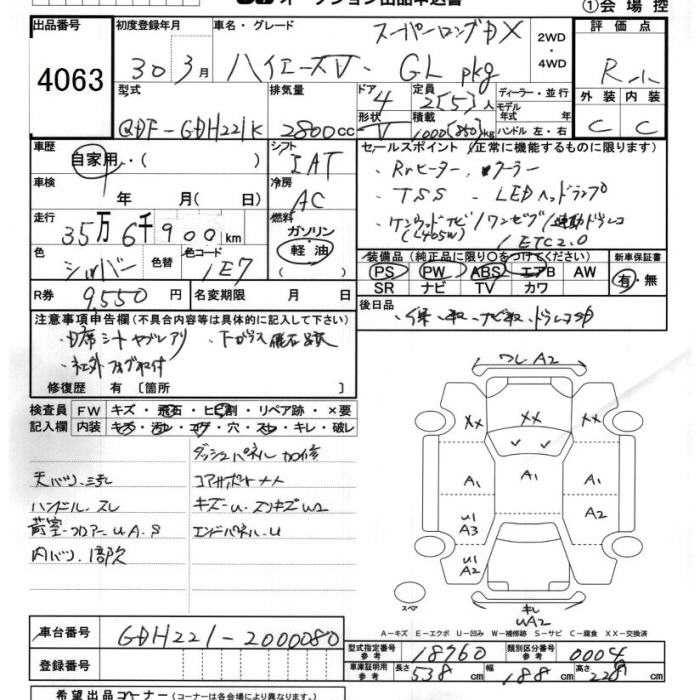 オークション出品申込書
①会場控
出品番号
4063
初度登録年月
30 3月
車名・グレード
スーパーロングDX
ハイエースV・GL pkg
2WD
・
4WD
評価点
R
外装 内装
C C
型式
QDF-GDH221K
排気量
2800cc
ドア
4
形状
V
定員
2(5)人
積載
1000(850)kg
ディーラー・並行
モデル
年式 年
ハンドル 左・右
車歴
自家用・( )
シフト
IAT
セールスポイント(正常に機能するものに限ります)
・Rrヒーター,・クーラー
・TSS ・LEDヘッドランプ
・ケンウッドナビ/ワンセグ/連動ドラレコ
(L405W) /ETC2.0
車検
年 月( 日)
冷房
AC
走行
35万6千900km
燃料
ガソリン
・
軽油
色
シルバー
色替
色コード
1E7
装備品(純正品に限り○をつけてください)
PS PW ABS エアB AW
SR ナビ TV カワ
新車保証書
有・無
R券 9,550円
名変期限 月 日
後日品
・保・取・ナビ取・ドラレコ取
注意事項申告欄(不具合内容等は具体的に記入して下さい)
・D席シートヤブレアリ
・社外フォグ取付
修復歴 有〔箇所 〕
検査員
記入欄
FW キズ・飛石・ヒビ割・リペア跡・×要
内装 キズ・汚レ・コゲ・穴・スレ・キレ・破レ
ダッシュパネル加修
コアサポート
天バリ
ハンドル.スレ
キズーU.エクボU2
荷室・フロアーUA.S
エンドパネル.U
内バリ
ワレA2
XX XX XX
A1 A1 A1
U1
A3
A2
U1
A2
スペア
キレ
UA2
A-キズ E-エクボ U-凹み W-補修跡 S-サビ C-腐食 XX-交換済
車台番号
GDH221-2000080
登録番号
型式指定番号
参考
18760
類別区分番号
参考
0004
車庫証明用
参考
長さ 538cm 幅 188cm 高さ 228cm
希望出品コーナー(コーナーは各会場により異なります)